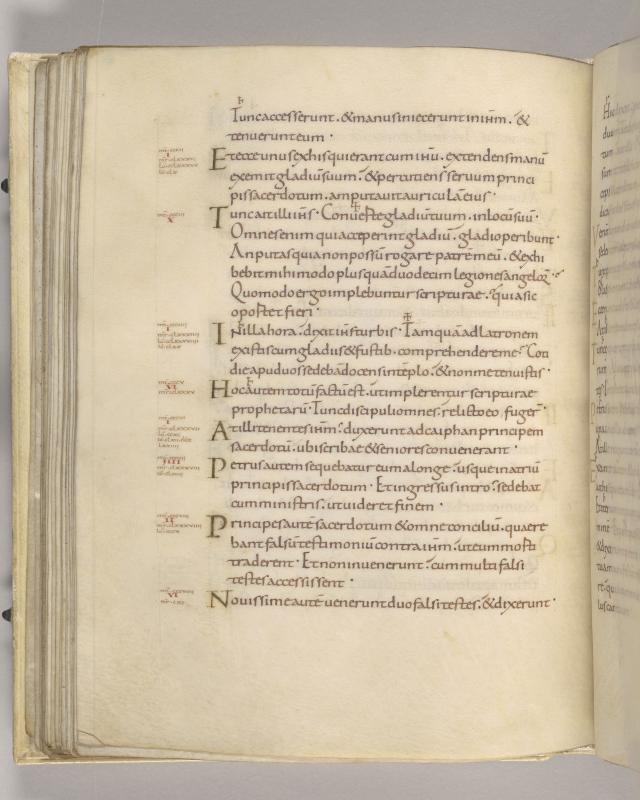 Tunc accesserunt . & manus iniecerunt in ihm̄ . &
tenuerunt eum .
Et ecce unus ex his qui erant cum ihū . extendens manū
exemit gladiū suum . & percutiens servum princi
pis sacerdotum . amputavit auriculā eius .
Tunc ait illi ihs̄ . Converte gladiū tuum . in locū suū .
Omnes enim qui acceperint gladiū . gladio peribunt .
An putas quia non possū rogare patrē meū . & exhi
bebit mihi modo plus quā duodecim legiones angeloꝝ .
Quomodo ergo implebuntur scripturae . quia sic
oportet fieri .
In illa hora . dixit ihs̄ turbis . Tamquā ad latronem
existis cum gladiis & fustib. comprehendere me . Coti
die apud vos sedebā docens in tēplo . & non me tenuistis .
Hoc autem totū factū est . ut implerentur scripturae
prophetarū . Tunc discipuli omnes . relicto eo . fuger̄ .
At illi tenentes ihm̄ . duxerunt ad caiphan principem
sacerdotū . ubi scribae & seniores convenerant .
Petrus autem sequebatur eum a longe . usque in atriū
principis sacerdotum . Et ingressus intro . sedebat
cum ministris . ut videret finem .
Principes autē sacerdotum & omne conciliū . quaere
bant falsū testimoniū contra ihm̄ . ut eum morti
traderent . Et non invenerunt . cum multi falsi
testes accessissent .
Novissime autē venerunt duo falsi testes . & dixerunt .